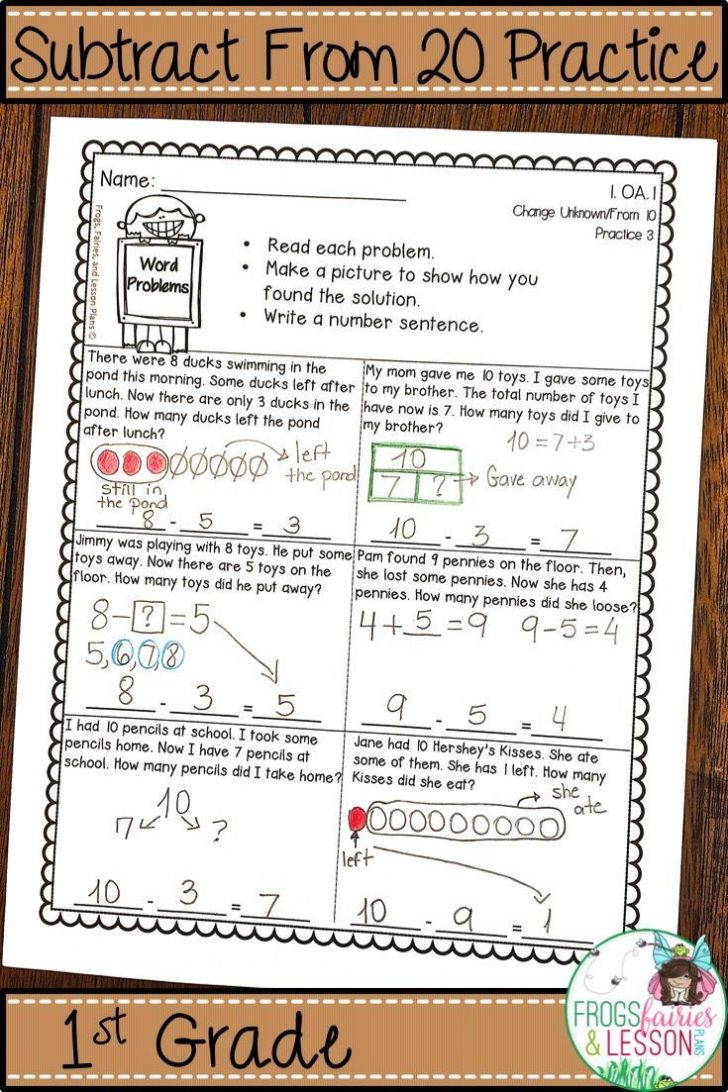 Subtract From 20 Practice
Name:
1. OA.1
Change Unknown/From 10
Practice 3
Frogs, Fairies, and Lesson Plans ©
Word
Problems
• Read each problem.
• Make a picture to show how you
found the solution.
• Write a number sentence.
There were 8 ducks swimming in the
pond this morning. Some ducks left after
lunch. Now there are only 3 ducks in the
pond. How many ducks left the pond
after lunch?
left
the pond
still in
the pond
8 - 5 = 3
My mom gave me 10 toys. I gave some toys
to my brother. The total number of toys I
have now is 7. How many toys did I give to
my brother?
10 = 7+3
10
7 ? Gave away
10 - 3 = 7
Jimmy was playing with 8 toys. He put some
toys away. Now there are 5 toys on the
floor. How many toys did he put away?
8 - ? = 5
5, 6, 7, 8
8 - 3 = 5
Pam found 9 pennies on the floor. Then,
she lost some pennies. Now she has 4
pennies. How many pennies did she loose?
4 + 5 = 9 9-5=4
9 - 5 = 4
I had 10 pencils at school. I took some
pencils home. Now I have 7 pencils at
school. How many pencils did I take home?
10
7 ?
10 - 3 = 7
Jane had 10 Hershey's Kisses. She ate
some of them. She has 1 left. How many
Kisses did she eat?
she
ate
left
10 - 9 = 1
1st Grade
FROGS fairies
& LESSON PLANS